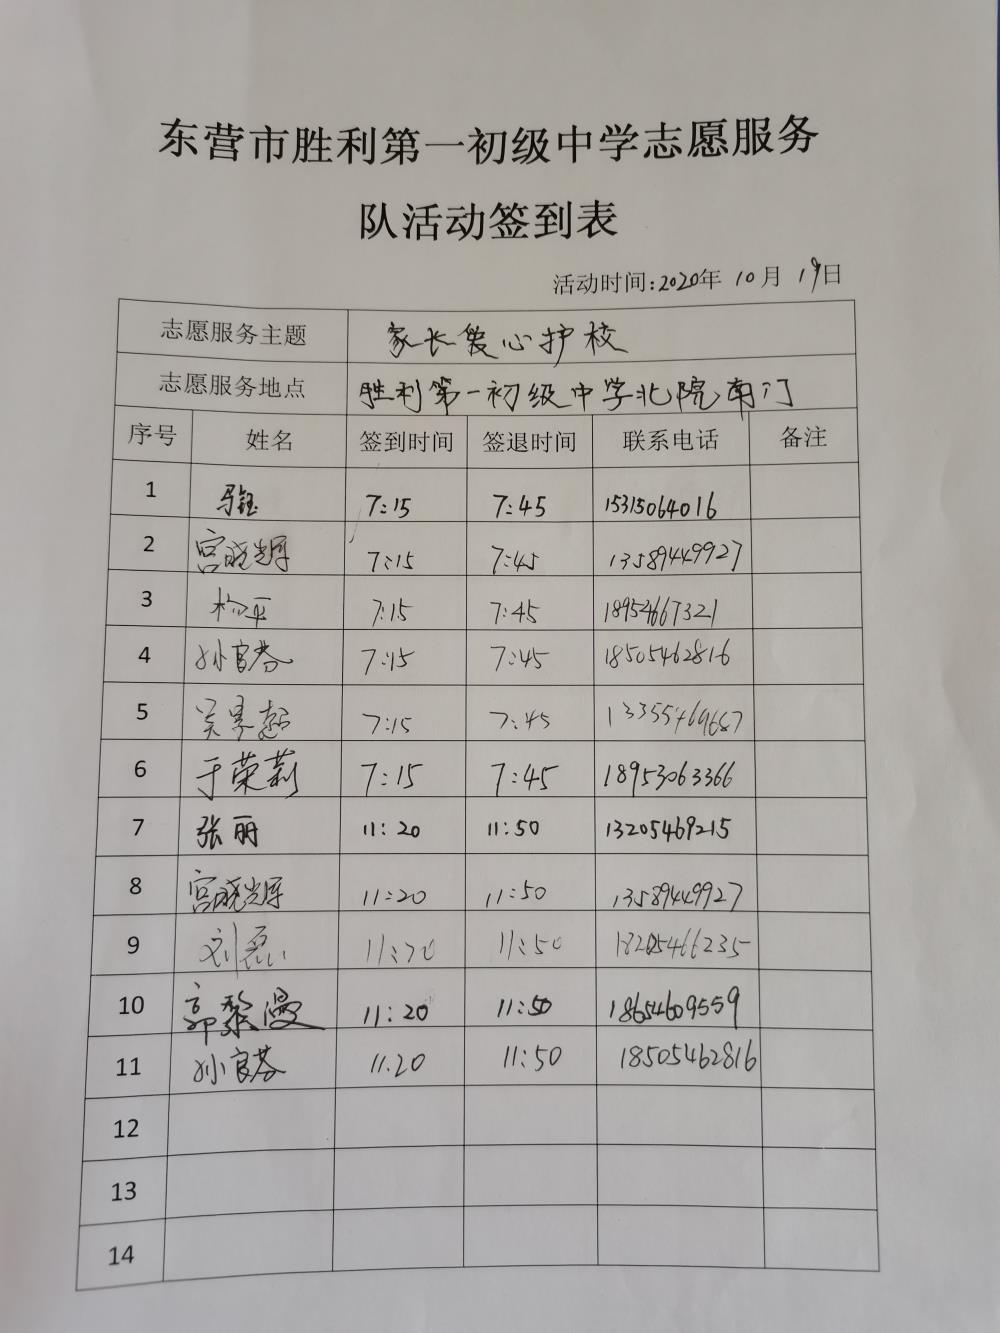 东营市胜利第一初级中学志愿服务
队活动签到表
活动时间:2020年 10月 19日
志愿服务主题 家长爱心护校
志愿服务地点 胜利第一初级中学北院南门
序号 姓名 签到时间 签退时间 联系电话 备注
1 马钰 7:15 7:45 15315064016
2 宫晓光厚 7:15 7:45 13589449927
3 杨平 7:15 7:45 18954667321
4 孙官芬 7:15 7:45 18505462816
5 7:15 7:45 13355469667
6 于荣莉 7:15 7:45 18953063366
7 张丽 11:20 11:50 13205469215
8 11:20 11:50 13589449927
9 刘磊 11:20 11:50 18205466235
10 郭黎漫 11:20 11:50 18654609559
11 孙官芬 11.20 11:50 18505462816
12
13
14